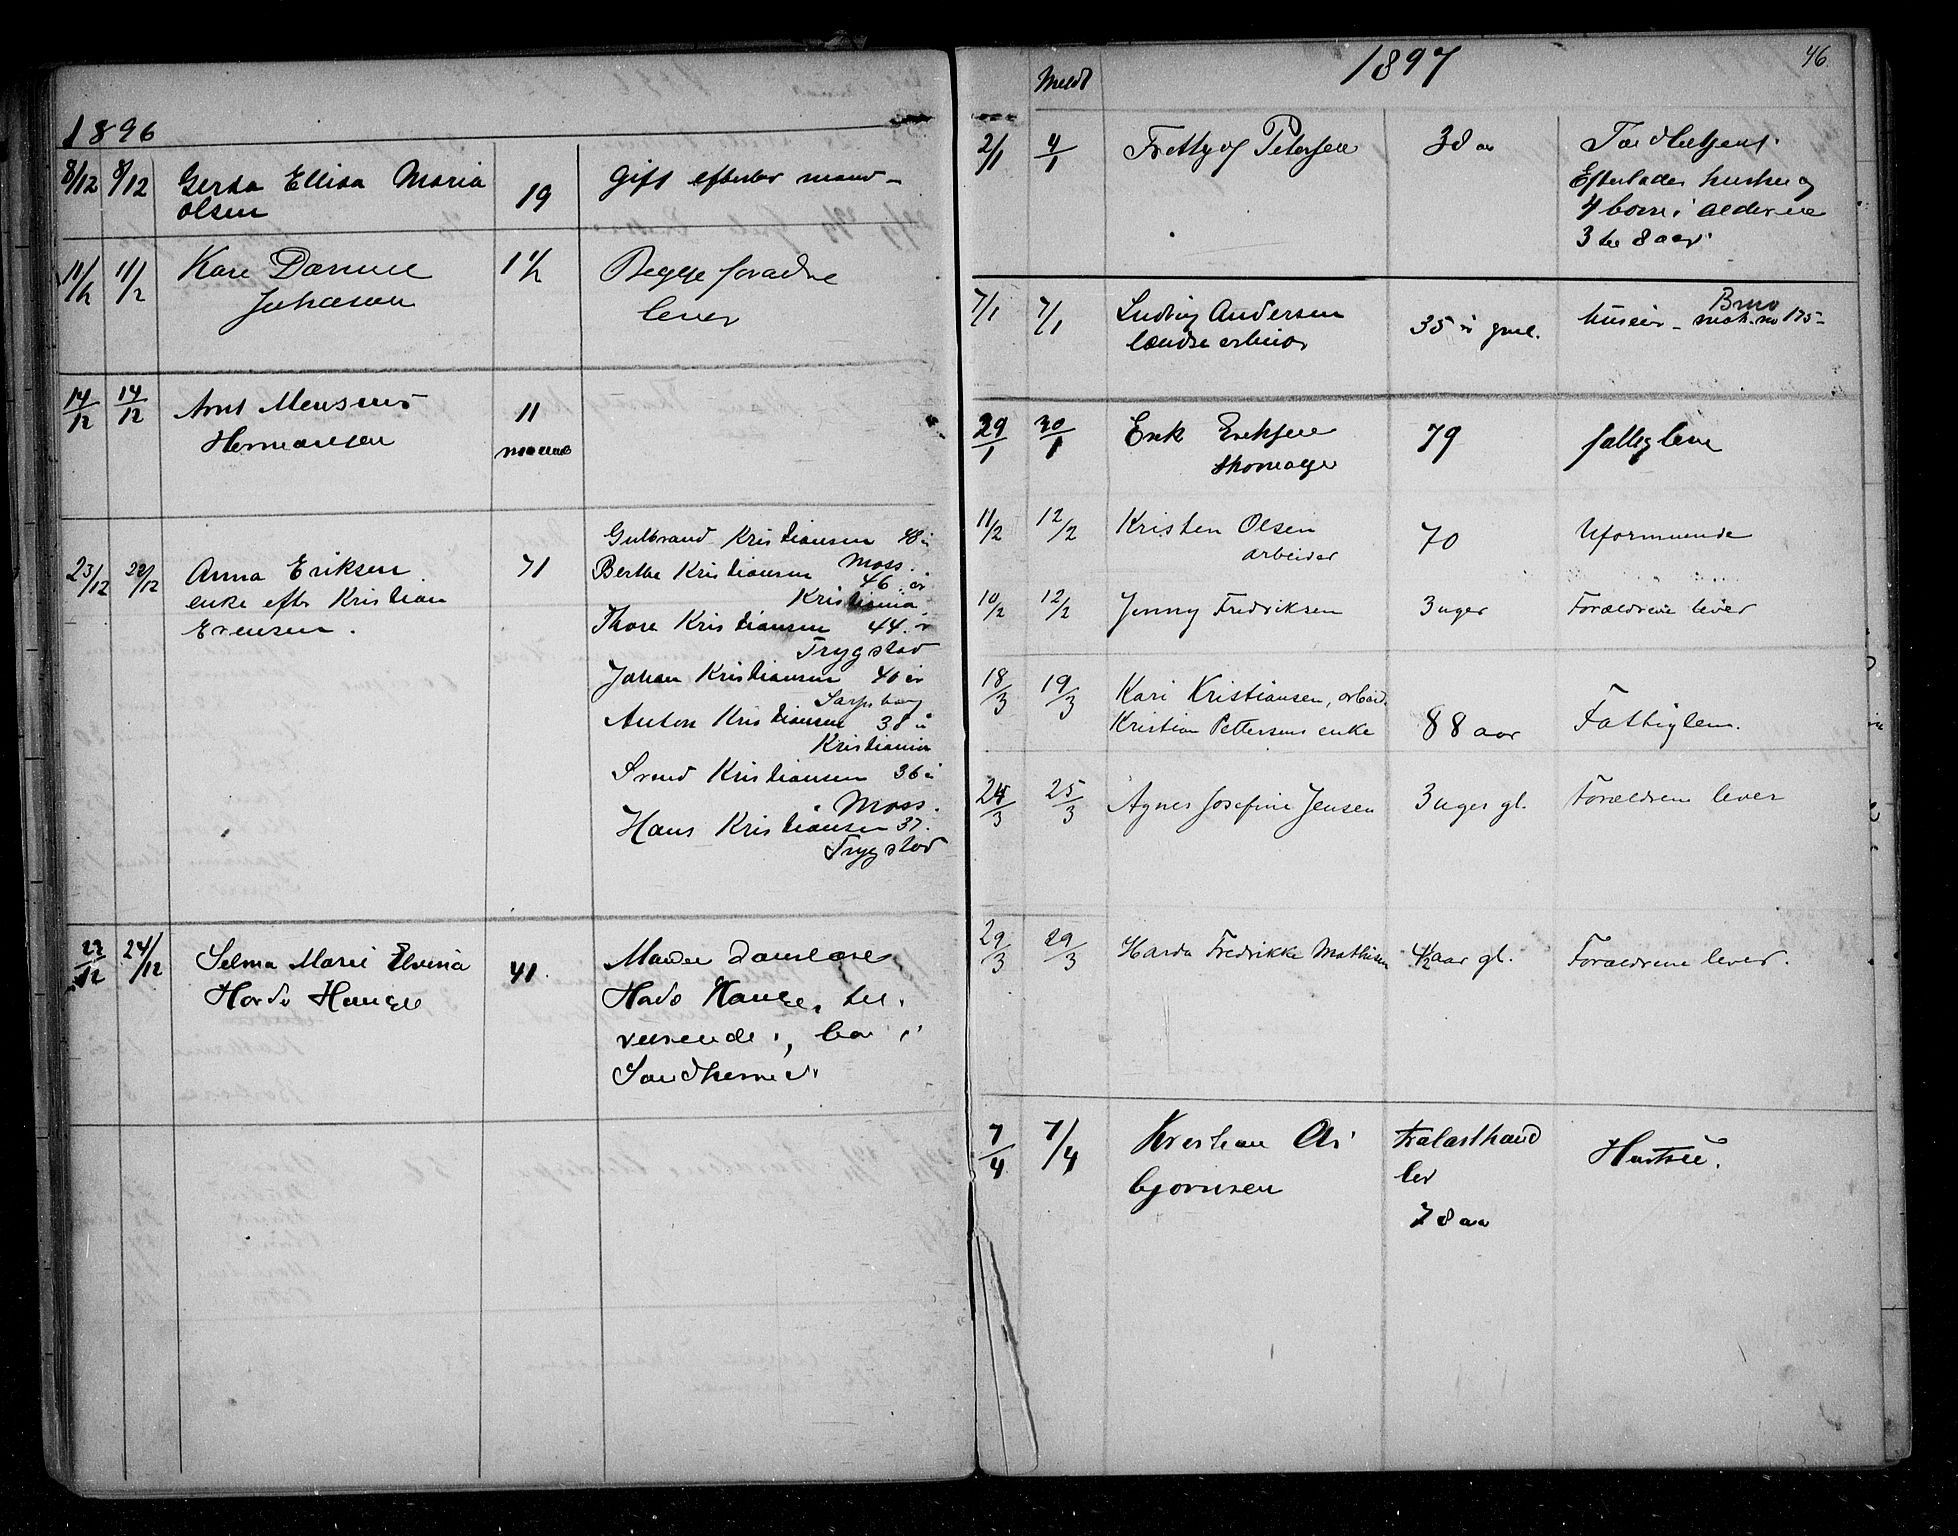 1896
8/12 8/12 Gerda Ellida Maria 19 Gift efterlev mand -
Olsen
11/12 11/12 Kare 1 1/2 Begge foraeldre
Johansen lever
14/12 14/12 Arnt 11
Hermansen maaned
23/12 28/12 Anna Eriksen 71
enke efter Kristian
Evensen.
Gulbrand Kristiansen 48 år
Moss.
Berthe Kristiansen 46 år
Kristiania
Thore Kristiansen 44 år
Trygstad
Johan Kristiansen 40 år
Sarpsborg
Anton Kristiansen 38 år
Kristiania
Svend Kristiansen 36 år
Moss.
Hans Kristiansen 37.
Trygstad
23/12 24/12 Selma Marie Elvina 41.
Hauge
Hauge, bor i
46
Meldt 1897
2/1 4/1 Petersen 38 aar Toldbetjent.
Efterlader hustru og
4 born i alderene
3 til 8 aar.
7/1 7/1 Ludvig Andersen 35 år gml. huseier - Brno
mat. no 175 -
29/1 30/1 Erik Eriksen 79 fattiglem
skomager
11/2 12/2 Kristen Olsen 70 Uformuende
arbeider
10/2 12/2 Jenny Fredriksen 3 uger Foraeldrene lever
18/3 19/3 Kari Kristiansen, arbeid.
Kristian Pettersens enke 88 aar Fattiglem.
24/3 25/3 Agnes Josefine Jensen 3 uger gl. Foraeldrene lever
29/3 29/3 Harda Fredrikke Mathisen 4 1/2 aar gl. Foraeldrene lever.
7/4 7/4 Kristian As Trælasthand Hustru.
bjørnsen ler
78 aar